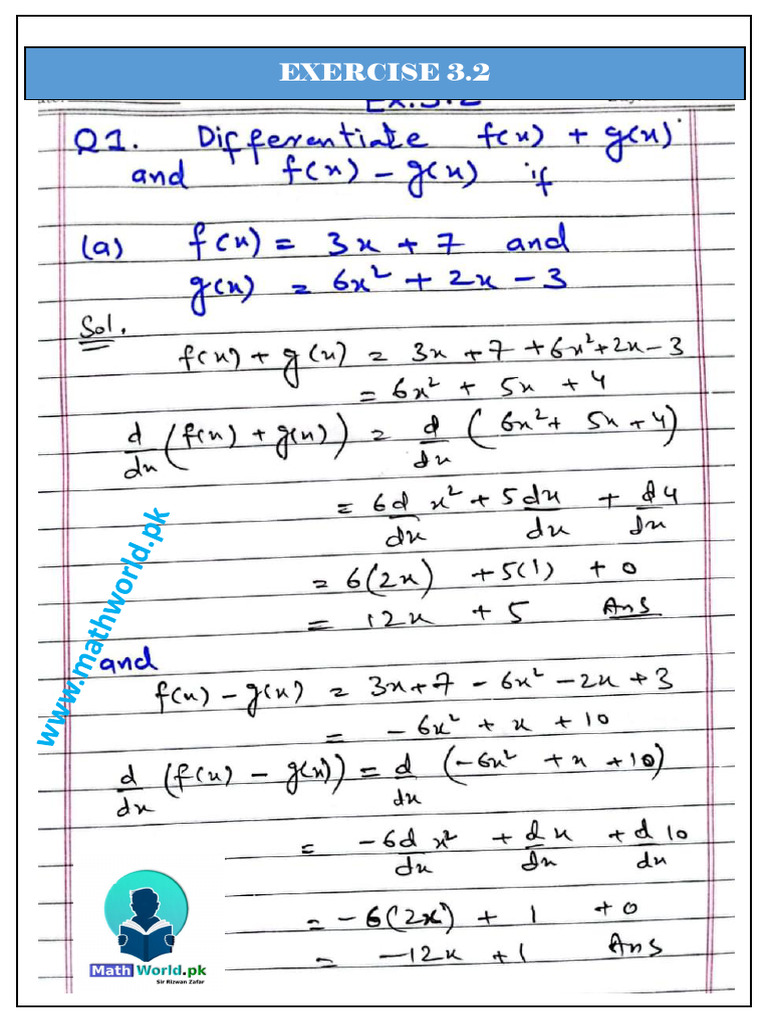 EXERCISE 3.2
Ex.3.2
Q1. Differentiate f(x) + g(x)
and f(x) - g(x) if
(a) f(x) = 3x + 7 and
g(x) = 6x² + 2x - 3
Sol.
f(x) + g(x) = 3x + 7 + 6x² + 2x - 3
= 6x² + 5x + 4
d/dx (f(x) + g(x)) = d/dx (6x² + 5x + 4)
= 6d/dx x² + 5dx/dx + d4/dx
= 6(2x) + 5(1) + 0
= 12x + 5 Ans
and
f(x) - g(x) = 3x + 7 - 6x² - 2x + 3
= - 6x² + x + 10
d/dx (f(x) - g(x)) = d/dx (-6x² + x + 10)
= -6d/dx x² + d/dx x + d/dx 10
= -6(2x) + 1 + 0
= -12x + 1 Ans
www.mathworld.pk
Math World.pk
Sir Rizwan Zafar